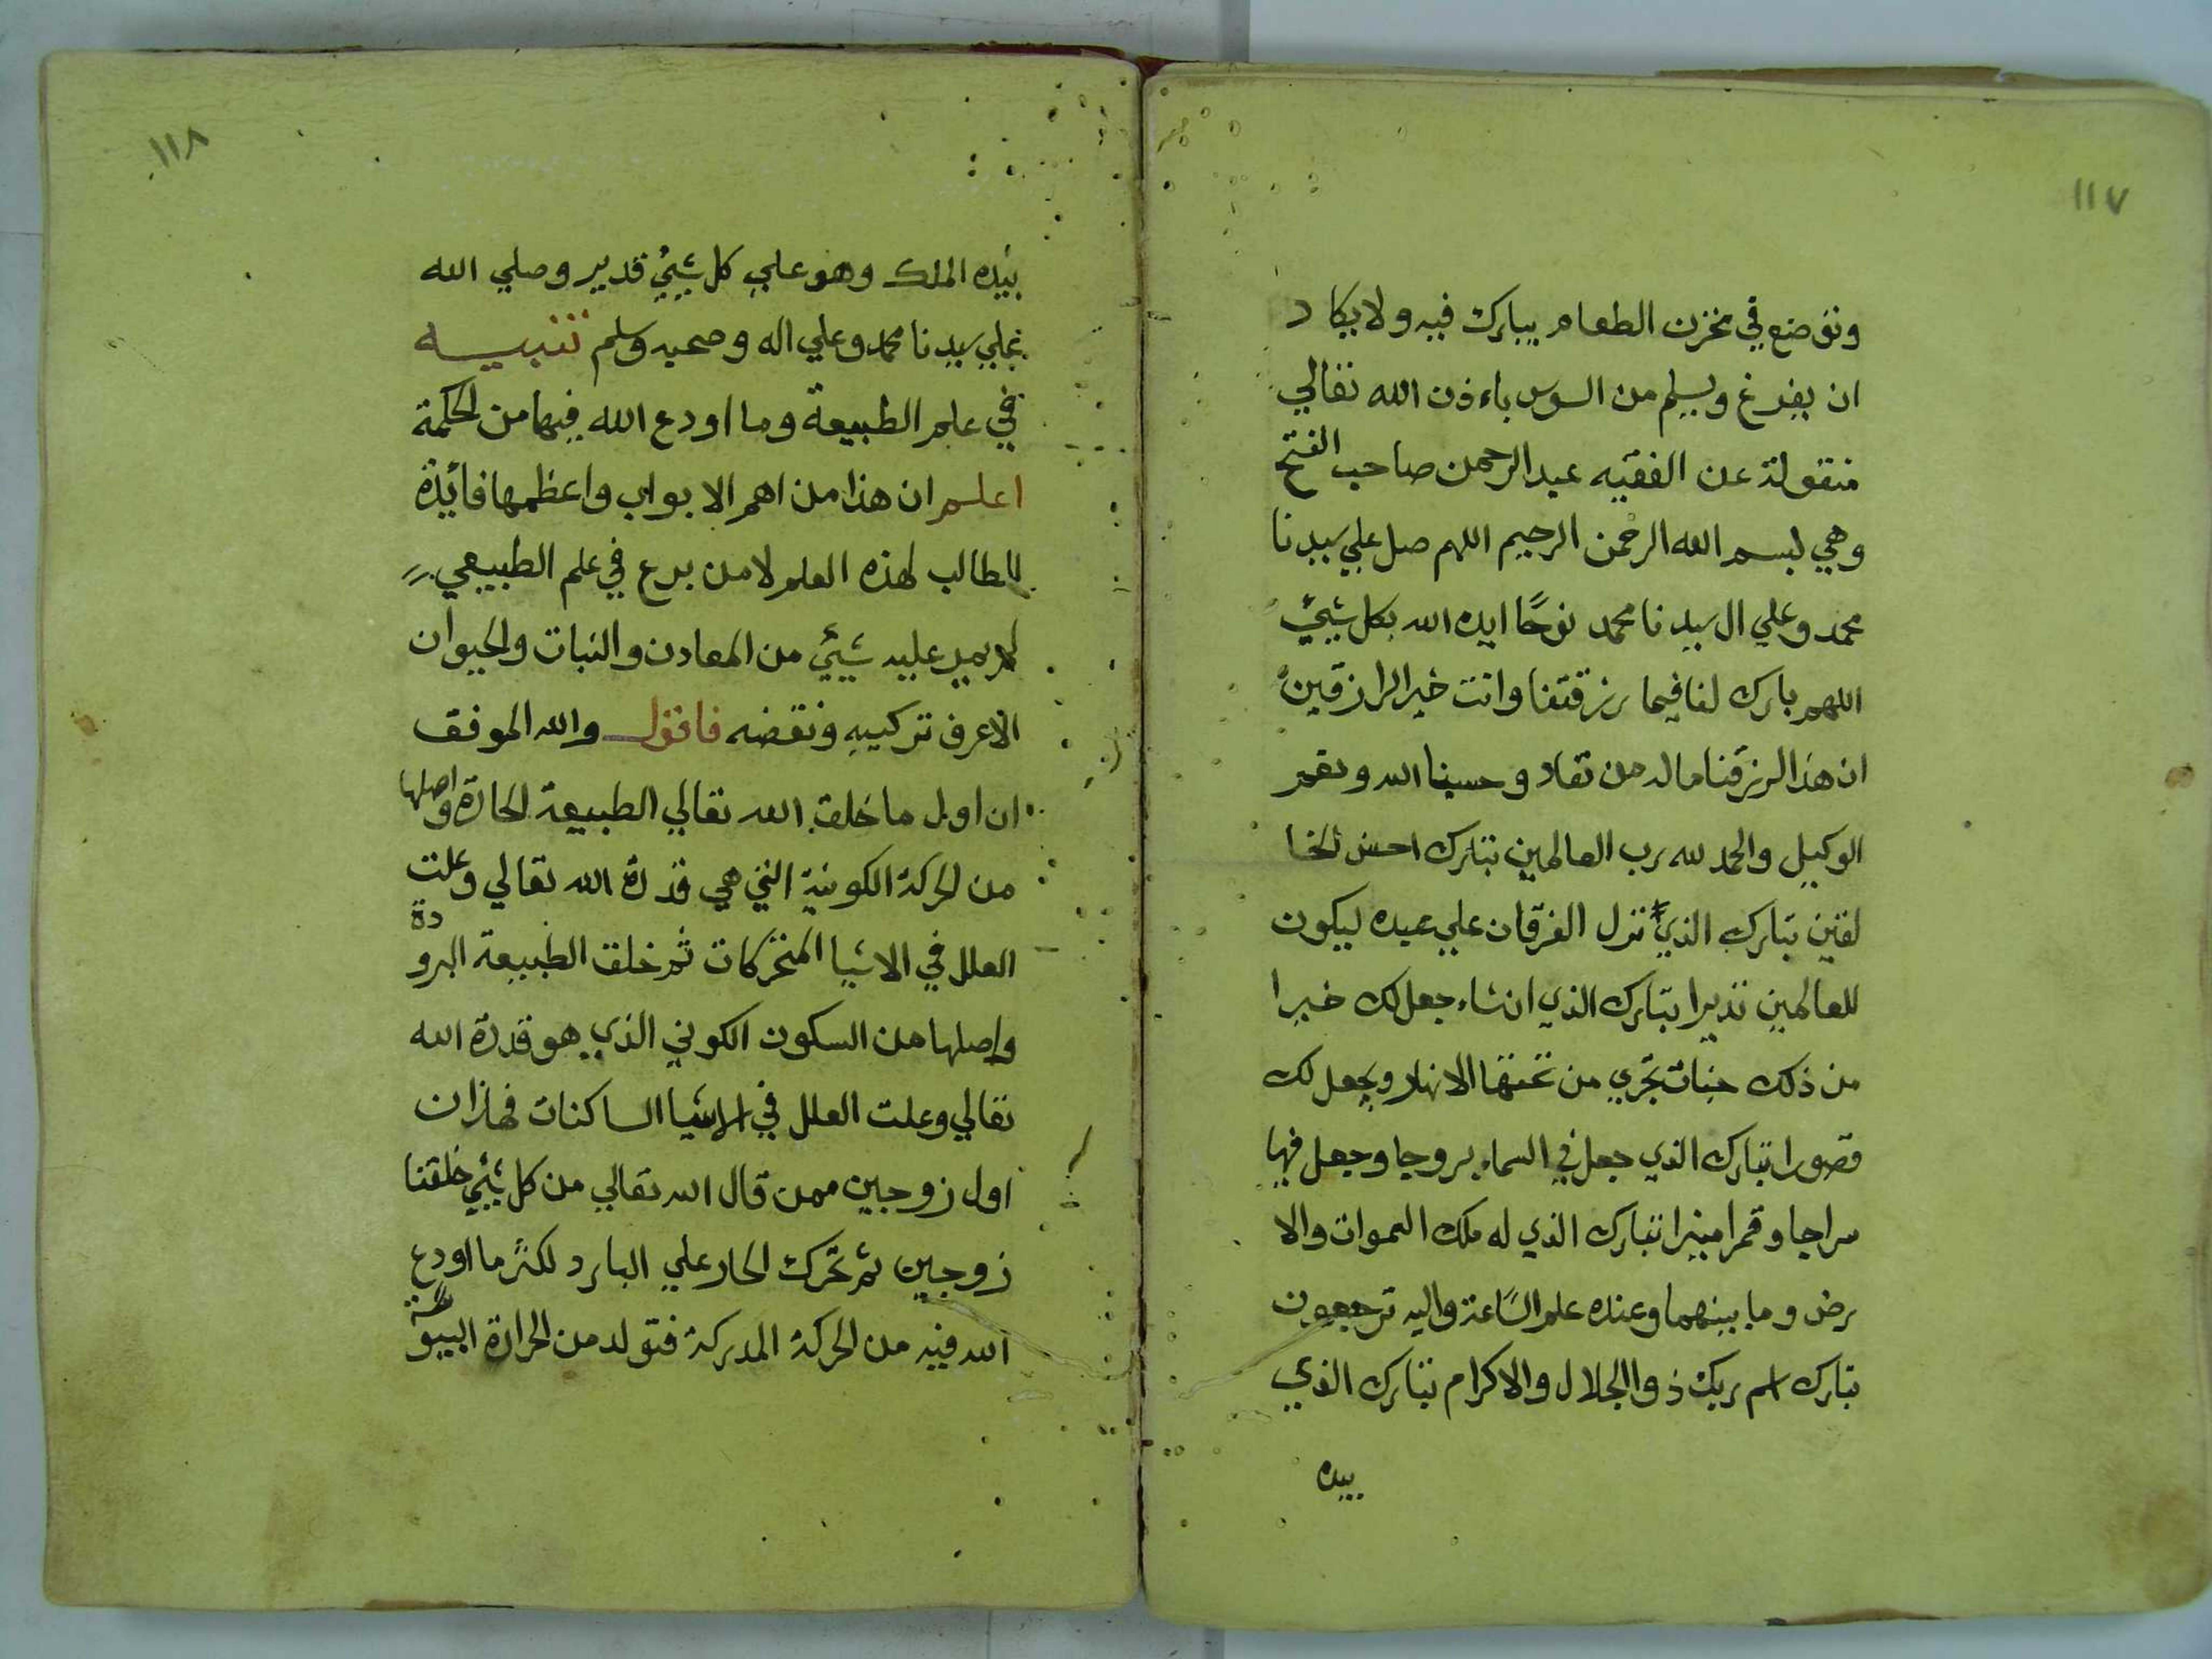 ١١٧
وتوضع في مخزن الطعام يبارك فيه ولا يكاد
ان يفرغ ويسلم من السوس باءذن الله تعالي
منقولة عن الفقيه عبد الرحمن صاحب الفتح
وهي بسم الله الرحمن الرحيم اللهم صل علي سيدنا
محمد وعلي ال سيدنا محمد نوحًا ايده الله بكل شيئ
اللهم بارك لنا فيما رزقتنا وانت خير الرازقين
ان هذا لرزقنا ماله من نفاد وحسبنا الله ونعم
الوكيل والحمد لله رب العالمين تبارك احسن الخا
لقين تبارك الذي نزل الفرقان علي عبده ليكون
للعالمين نذيرا تبارك الذي انشاء جعل لك خيرا
من ذلك جنات تجري من تحتها الانهار ويجعل لك
قصورا تبارك الذي جعل في السماء بروجا وجعل فيها
سراجا وقمرا منيرا تبارك الذي له ملك السموات والا
رض وما بينهما وعنده علم الساعة واليه ترجعون
تبارك اسم ربك ذوا الجلال والاكرام تبارك الذي
بيده
١١٨
بيده الملك وهو علي كل شيئ قدير وصلي الله
علي سيدنا محمد وعلي اله وصحبه وسلم تنبيه
في علم الطبيعة وما اودع الله فيها من الحكمة
اعلم ان هذا من اهم الابواب واعظمها فائدة
للطالب لهذه العلم لا من برع في علم الطبيعي
لم يمر عليه شيئ من المعادن والنبات والحيوان
الا عرف تركيبه ونقضه فاقول والله الموفق
ان اول ما خلق الله تعالي الطبيعة الحارة واصلها
من الحركة الكونية التي هي قدرة الله تعالي وعلت
العلل في الاشيا المتحركات ثم خلق الطبيعة البرودة
واصلها من السكون الكوني الذي هو قدرة الله
تعالي وعلت العلل في الاشيا الساكنات فهاذان
اول زوجين ممن قال الله تعالي من كل شيئ خلقنا
زوجين ثم تحرك الحار علي البارد لكثر ما اودع
الله فيه من الحركة المدركة فتولد من الحرارة اليبوسة